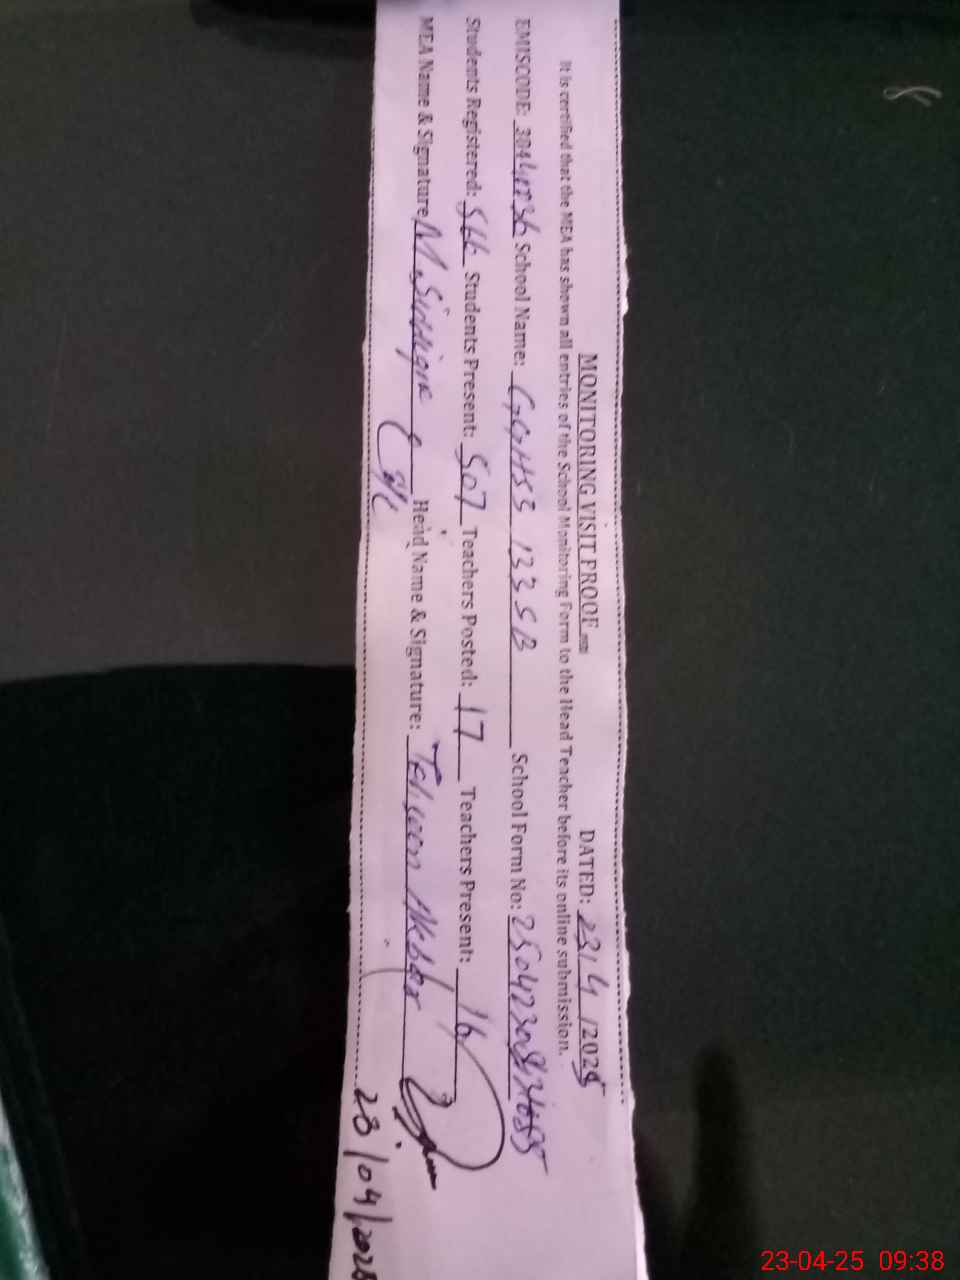 MONITORING VISIT PROOF DATED: 23/4/2025
It is certified that the MEA has shown all entries of the School Monitoring Form to the Head Teacher before its online submission.
EMISCODE: School Name: GGHSS 133 SB School Form No:
Students Registered: Students Present: 507 Teachers Posted: 17 Teachers Present: 16
MEA Name & Signature M. Head Name & Signature: Akbar
/04/2025
23-04-25 09:38